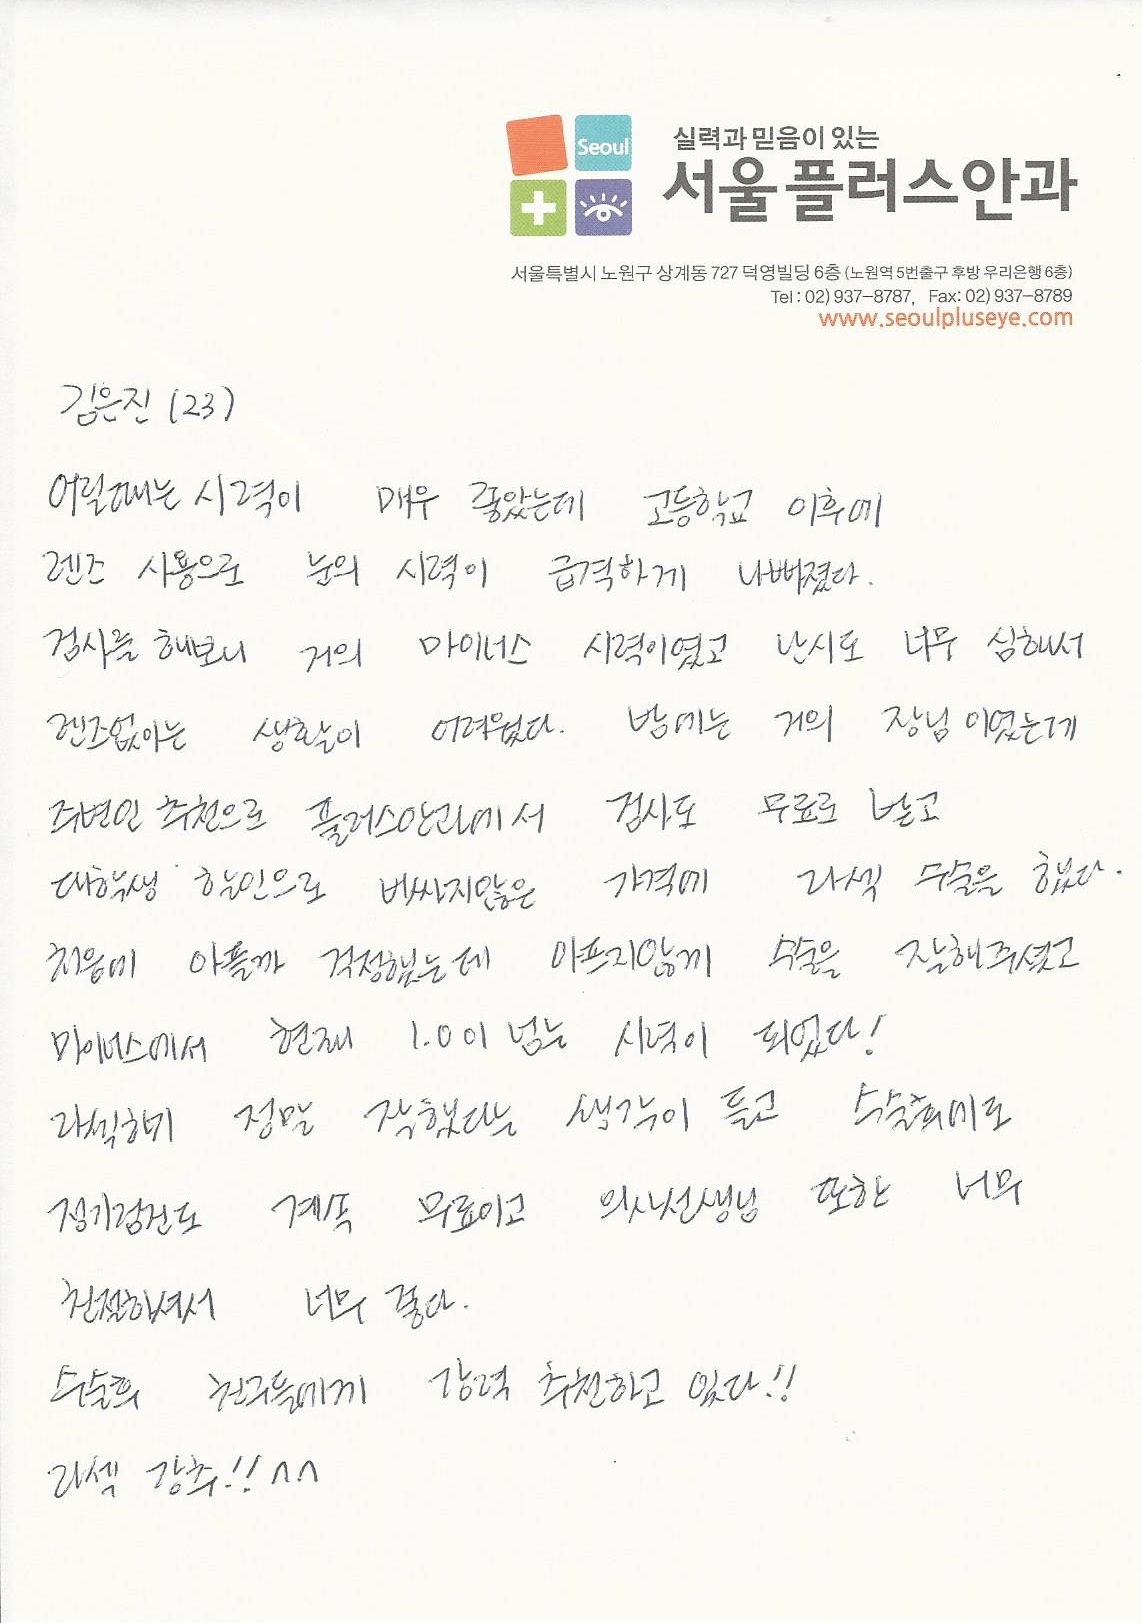 Seoul
실력과 믿음이 있는
서울플러스안과
서울특별시 노원구 상계동 727 덕영빌딩 6층 (노원역 5번출구 후방 우리은행 6층)
Tel : 02) 937-8787,  Fax: 02) 937-8789
www.seoulpluseye.com
김은진 (23)
어릴때는 시력이 매우 좋았는데 고등학교 이후에
렌즈 사용으로 눈의 시력이 급격하게 나빠졌다.
검사를 해보니 거의 마이너스 시력이였고 난시도 너무 심해서
렌즈없이는 생활이 어려웠다. 밤에는 거의 장님이였는데
주변인 추천으로 플러스안과에서 검사도 무료로 받고
대학생 할인으로 비싸지않은 가격에 라섹 수술을 했다.
처음에 아플까 걱정했는데 아프지않게 수술을 잘해주셨고
마이너스에서 현재 1.0이 넘는 시력이 되었다!
라섹하기 정말 잘했다는 생각이 들고 수술후에도
정기검진도 계속 무료이고 의사선생님 또한 너무
친절하셔서 너무 좋다.
수술후 친구들에게 강력 추천하고 있다!!
라섹 강추!! ^^